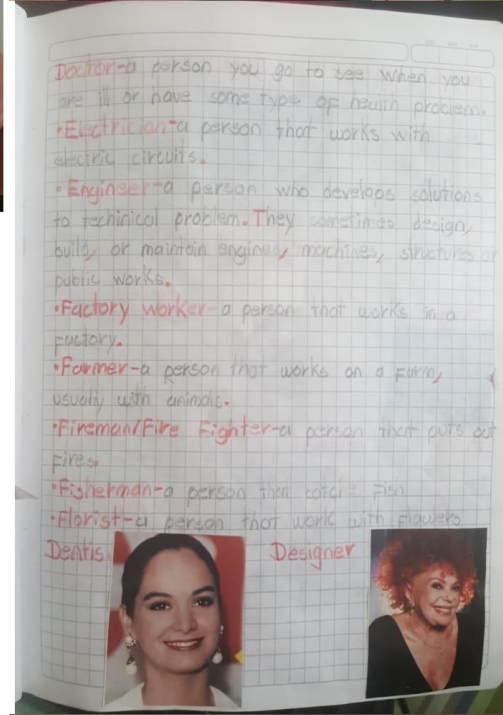 Doctor-a person you go to see when you
are ill or have some type of health problem.
•Electrician-a person that works with
electric circuits.
•Engineer-a person who develops solutions
to techinical problem. They sometimes design,
build, or maintain engines, machines, structures or
public works.
•Factory worker-a person that works in a
factory.
•Farmer-a person that works on a farm,
usually with animals.
•Fireman/Fire Fighter-a person that puts out
fires.
•Fisherman-a person that fish
•Florist-a person that work with flowers
Dentis Designer